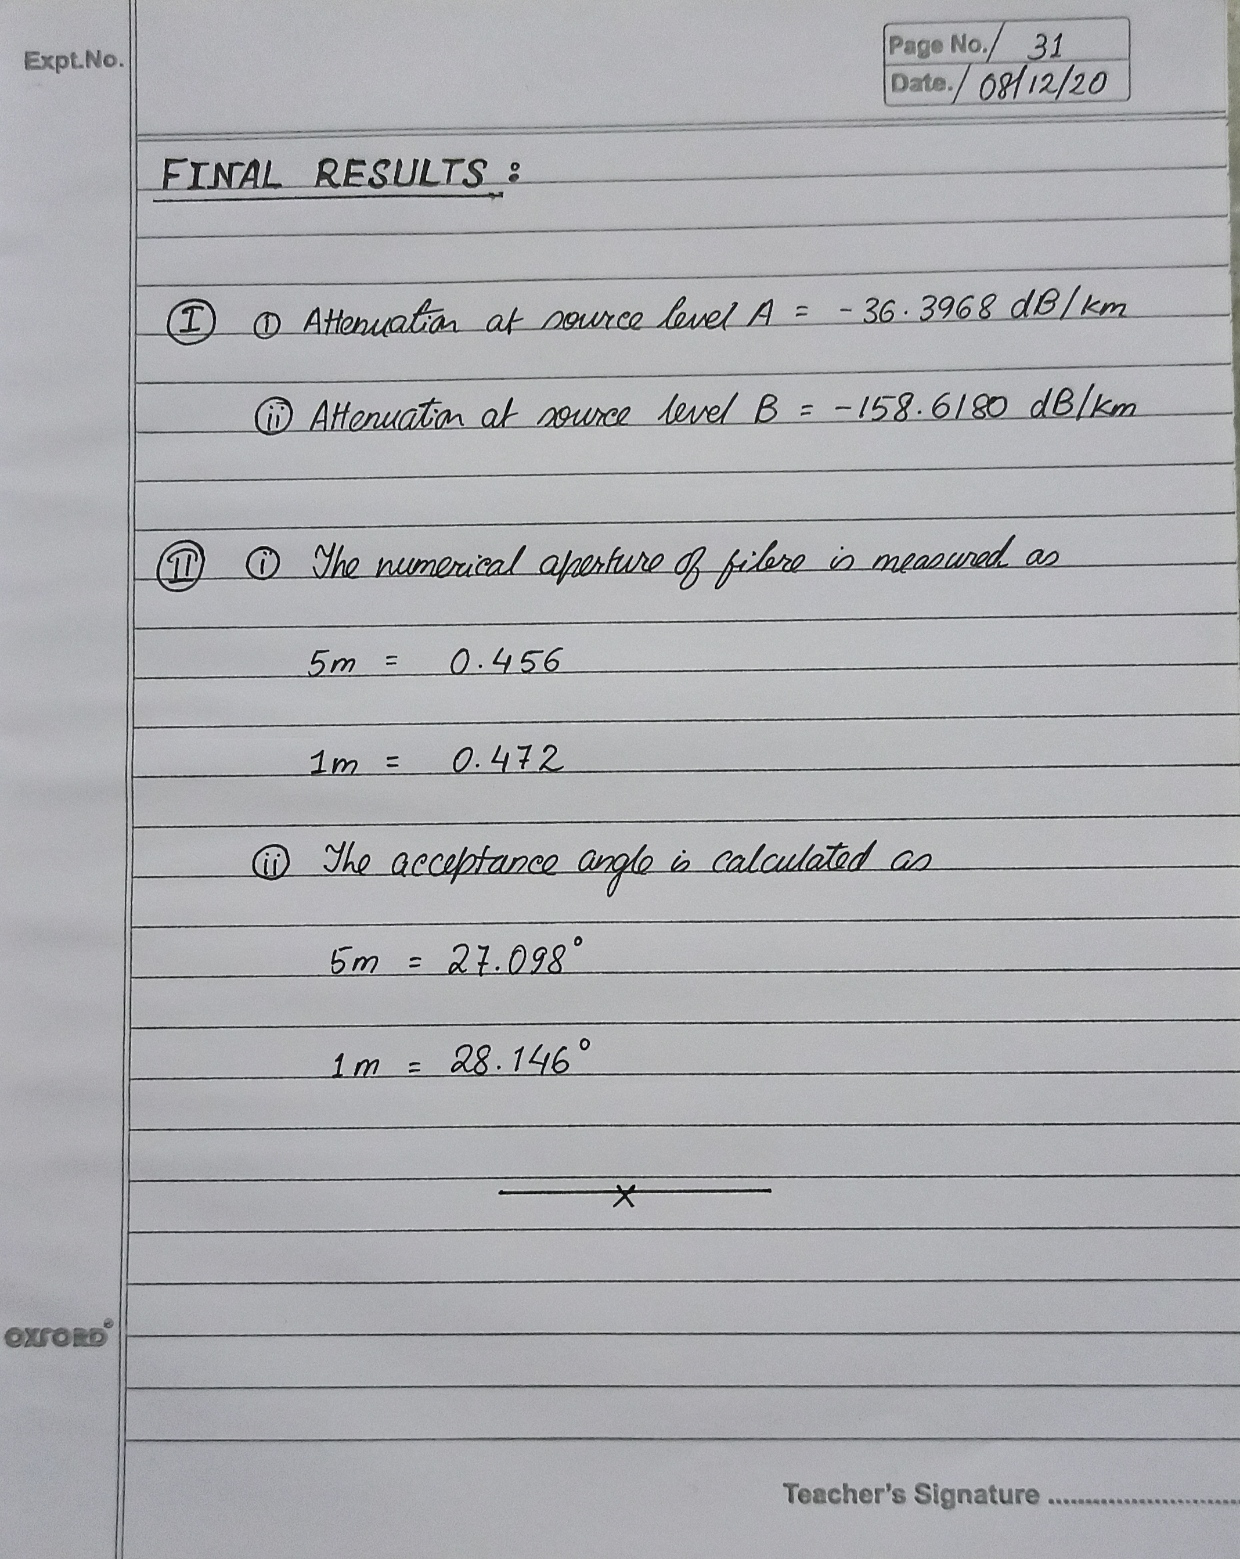 Expt.No.
Page No./ 31
Date./ 08/12/20
FINAL RESULTS :
I i Attenuation at source level A = -36.3968 dB/km
ii Attenuation at source level B = -158.6180 dB/km
II i The numerical aperture of fibre is measured as
5m = 0.456
1m = 0.472
ii The acceptance angle is calculated as
5m = 27.098°
1m = 28.146°
x
OXFORD®
Teacher's Signature ..........................